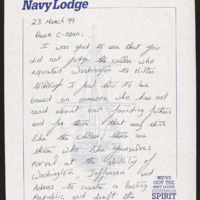 Navy Lodge
23 March 99
Dear C-span,
I was glad to see that you
did not judge the caller who
equated Washington to Hitler
Although I feel this to be
based on someone who has not
read about our founding fathers
and for them that may
like the caller, there are
them who like yourselves
marvel at the ability of
Washington, Jefferson and
Adams to create a lasting
Republic and draft the
WE'VE
GOT THE
SPIRIT